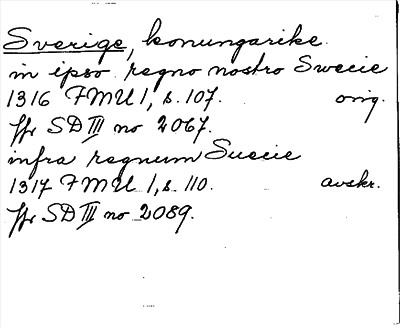 Sverige, konungarike.
in ipso regno nostro Swecie
1316 FMU I, s. 107. orig.
Jfr SD III no 2067.
infra regnum Suecie
1317 FMU I, s. 110. avskr.
Jfr SD III no 2089.